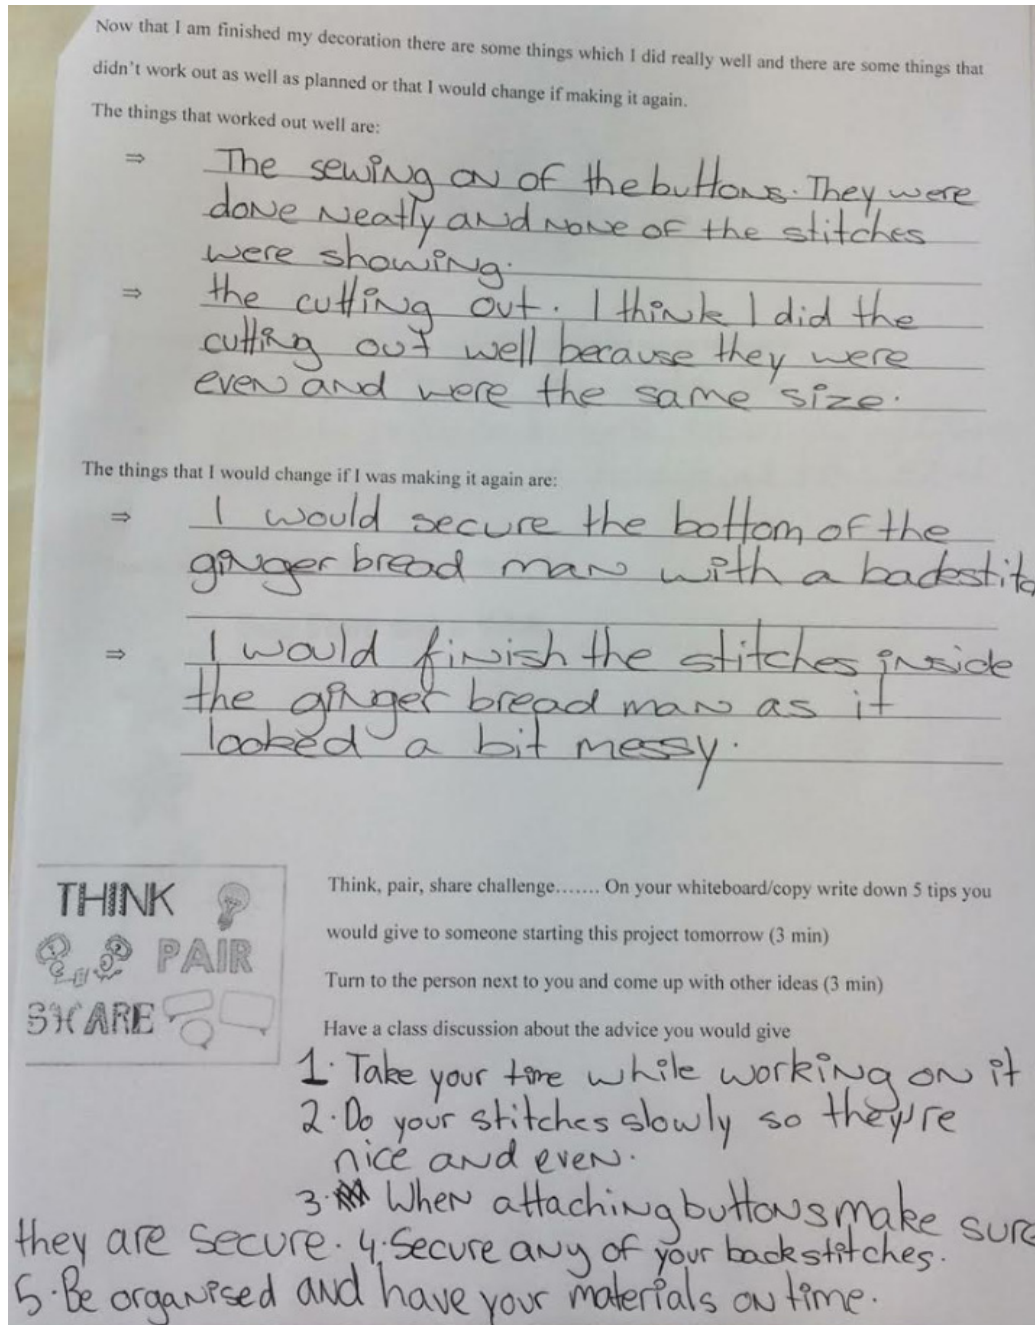 Now that I am finished my decoration there are some things which I did really well and there are some things that
didn't work out as well as planned or that I would change if making it again.
The things that worked out well are:
⇒ The sewing on of the buttons. They were
done neatly and none of the stitches
were showing.
⇒ the cutting out. I think I did the
cutting out well because they were
even and were the same size.
The things that I would change if I was making it again are:
⇒ I would secure the bottom of the
ginger bread man with a backstitc
⇒ I would finish the stitches inside
the ginger bread man as it
looked a bit messy.
THINK
PAIR
SHARE
Think, pair, share challenge....... On your whiteboard/copy write down 5 tips you
would give to someone starting this project tomorrow (3 min)
Turn to the person next to you and come up with other ideas (3 min)
Have a class discussion about the advice you would give
1. Take your time while working on it
2. Do your stitches slowly so they're
nice and even.
3. When attaching buttons make sure
they are secure. 4. Secure any of your backstitches.
5. Be organised and have your materials on time.